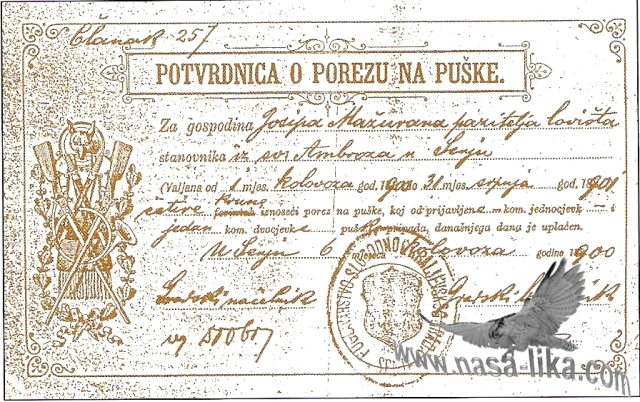 Članak 257
POTVRDNICA O POREZU NA PUŠKE.
Za gospodina Josipa Mažurana pazitelja lovišta
stanovnika iz sv. Ambroza u Senju
(Valjana od 1 mjes. kolovoza god. 1900 do 31 mjes. srpnja god. 1901
četiri krune iznoseći porez na puške, koj od prijavljene – kom. jednocjevk – i
jedan kom. dvocjevke puške pripada, današnjega dana je uplaćen.
U Senju 6 mjeseca kolovoza godine 1900
Gradski načelnik Gradski
www.nasa-lika.com